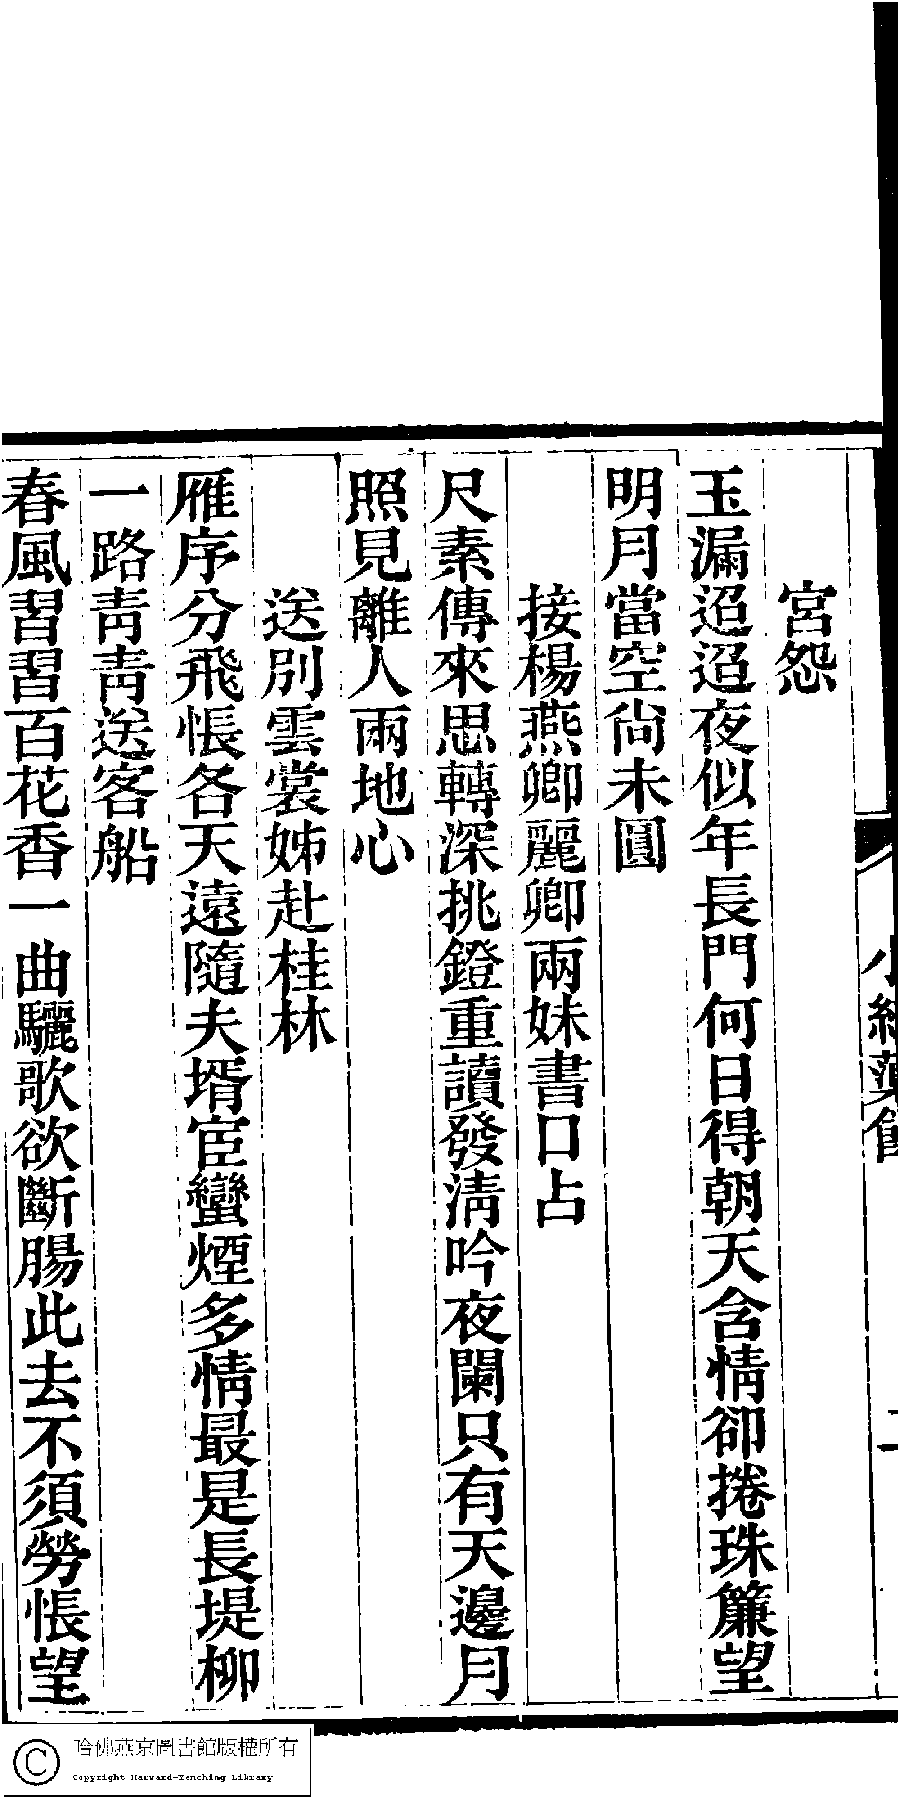 宮怨
玉漏迢迢夜似年長門何日得朝天含情卻捲珠簾望
明月當空尙未圓
接楊燕卿麗卿兩妹書口占
尺素傳來思轉深挑鐙重讀發淸吟夜闌只有天邊月
照見離人兩地心
送別雲裳姊赴桂林
雁序分飛悵各天遠隨夫壻宦蠻煙多情最是長堤柳
一路靑靑送客船
春風習習百花香一曲驪歌欲斷腸此去不須勞悵望
哈佛燕京圖書館版權所有
Copyright Harvard-Yenching Library